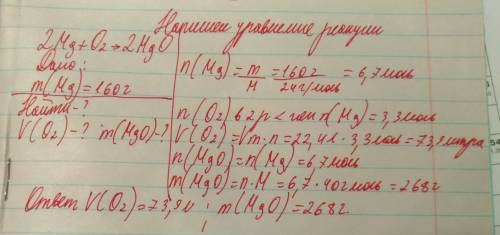 Напишем уравнение реакции
2Mg+O2→2MgO
Дано:
m(Mg)=160г
Найти-?
V(O2)-? m(MgO)-?
n(Mg)=m/M=160г/24г/моль=6,7моль
n(O2) в 2р< чем n(Mg)=3,3моль
V(O2)=Vm·n=22,4л·3,3моль=73,9литра
n(MgO)=n(Mg)=6,7моль
m(MgO)=n·M=6,7·40гмоль=268г
Ответ V(O2)=73,9л ; m(MgO)=268г